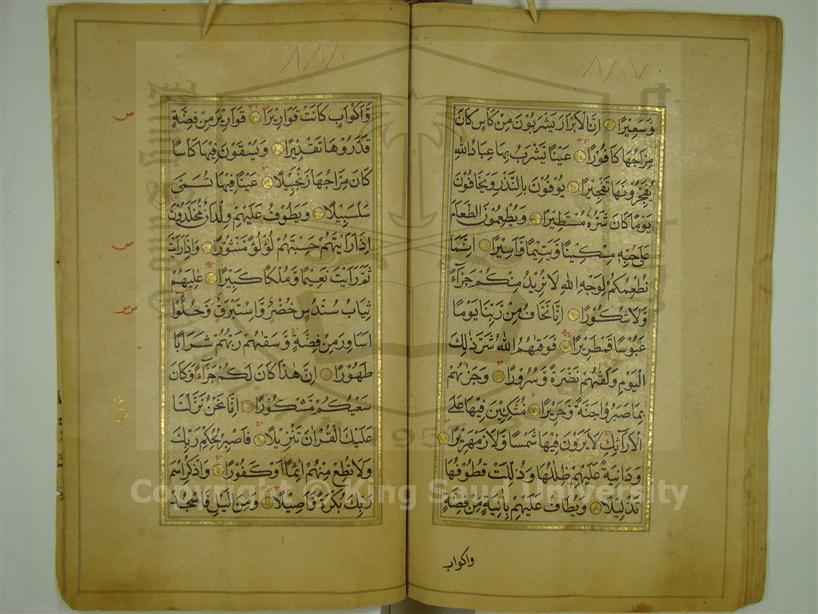 ٨١٧
وَسَعِيرًا اِنَّ الْاَبْرَارَ يَشْرَبُونَ مِنْ كَاْسٍ كَانَ
مِزَاجُهَا كَافُورًا عَيْنًا يَشْرَبُ بِهَا عِبَادُ اللهِ
يُفَجِّرُونَهَا تَفْجِيرًا يُوفُونَ بِالنَّذْرِ وَيَخَافُونَ
يَوْمًا كَانَ شَرُّهُ مُسْتَطِيرًا وَيُطْعِمُونَ الطَّعَامَ
عَلَى حُبِّهِ مِسْكِينًا وَيَتِيمًا وَاَسِيرًا اِنَّمَا
نُطْعِمُكُمْ لِوَجْهِ اللهِ لَا نُرِيدُ مِنْكُمْ جَزَآءً
وَلَا شُكُورًا اِنَّا نَخَافُ مِنْ رَبِّنَا يَوْمًا
عَبُوسًا قَمْطَرِيرًا فَوَقٰهُمُ اللهُ شَرَّ ذٰلِكَ
الْيَوْمِ وَلَقّٰهُمْ نَضْرَةً وَسُرُورًا وَجَزٰهُمْ
بِمَا صَبَرُوا جَنَّةً وَحَرِيرًا مُتَّكِئِينَ فِيهَا عَلَى
الْاَرَآئِكِ لَا يَرَوْنَ فِيهَا شَمْسًا وَلَا زَمْهَرِيرًا
وَدَانِيَةً عَلَيْهِمْ ظِلٰلُهَا وَذُلِّلَتْ قُطُوفُهَا
تَذْلِيلًا وَيُطَافُ عَلَيْهِمْ بِاٰنِيَةٍ مِنْ فِضَّةٍ
واكواب
٨١٨
وَاَكْوَابٍ كَانَتْ قَوَارِيرَا قَوَارِيرَ مِنْ فِضَّةٍ
قَدَّرُوهَا تَقْدِيرًا وَيُسْقَوْنَ فِيهَا كَاْسًا
كَانَ مِزَاجُهَا زَنْجَبِيلًا عَيْنًا فِيهَا تُسَمّٰى
سَلْسَبِيلًا وَيَطُوفُ عَلَيْهِمْ وِلْدَانٌ مُخَلَّدُونَ
اِذَا رَاَيْتَهُمْ حَسِبْتَهُمْ لُؤْلُؤًا مَنْثُورًا وَاِذَا رَاَيْتَ
ثَمَّ رَاَيْتَ نَعِيمًا وَمُلْكًا كَبِيرًا عٰلِيَهُمْ
ثِيَابُ سُنْدُسٍ خُضْرٌ وَاِسْتَبْرَقٌ وَحُلُّوا
اَسَاوِرَ مِنْ فِضَّةٍ وَسَقٰهُمْ رَبُّهُمْ شَرَابًا
طَهُورًا اِنَّ هٰذَا كَانَ لَكُمْ جَزَآءً وَكَانَ
سَعْيُكُمْ مَشْكُورًا اِنَّا نَحْنُ نَزَّلْنَا
عَلَيْكَ الْقُرْاٰنَ تَنْزِيلًا فَاصْبِرْ لِحُكْمِ رَبِّكَ
وَلَا تُطِعْ مِنْهُمْ اٰثِمًا اَوْ كَفُورًا وَاذْكُرِ اسْمَ
رَبِّكَ بُكْرَةً وَاَصِيلًا وَمِنَ الَّيْلِ فَاسْجُدْ لَهُ
Copyright © King Saud University